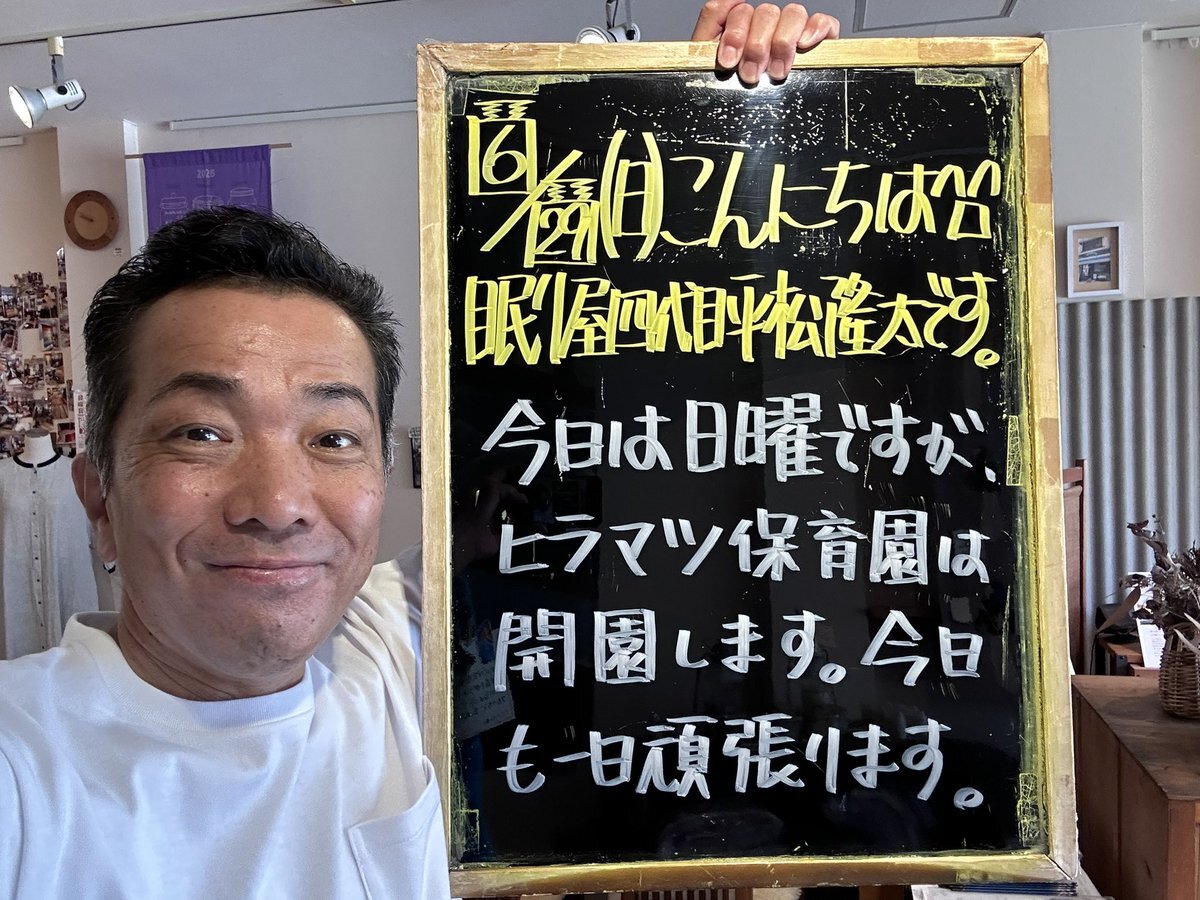 2025
6/29(日)こんにちは^口^
眠り屋四代目平松隆太です。
今日は日曜ですが、
ヒラマツ保育園は
開園します。今日
も一日頑張ります。